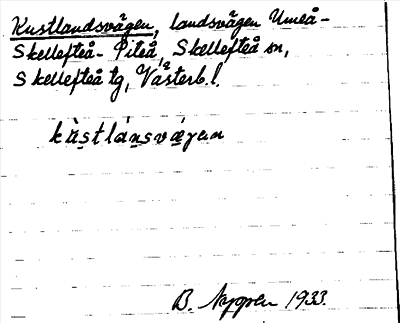 Kustlandsvägen, landsvägen Umeå-
Skellefteå - Piteå, Skellefteå sn,
Skellefteå tg, Västerb. l.
kùstlánsvägan
B. Nygren 1933.